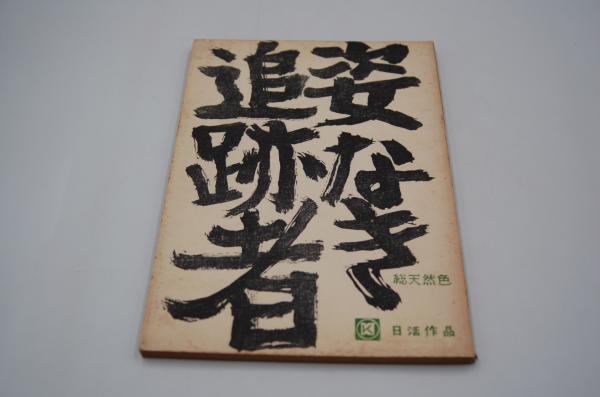 姿なき
追跡者
総天然色
K
日活作品